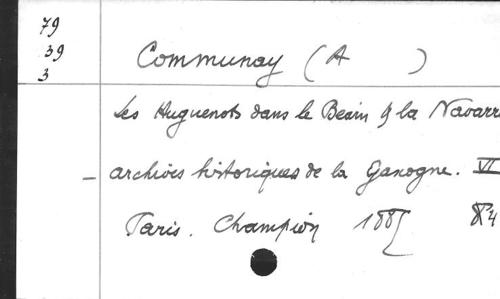 79
39
3
Communay (A )
Les Huguenots dans le Béarn & la Navarr
- archives historiques de la Gascogne. VI
Paris. Champion 1885